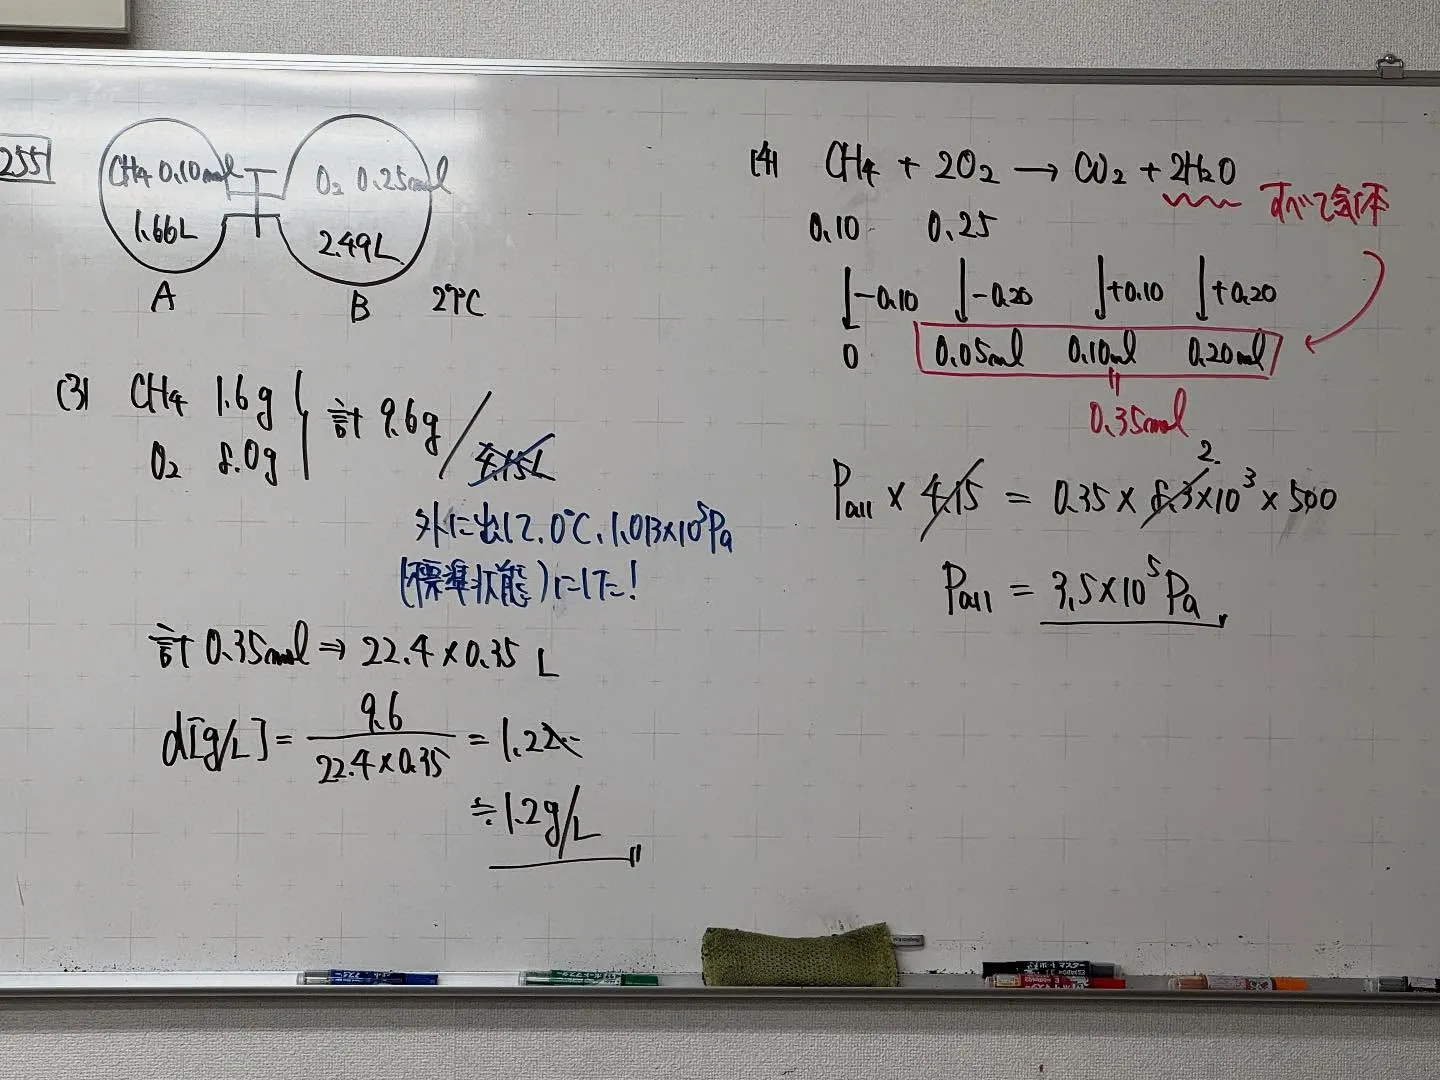 255
CH₄ 0.10mol
1.66L
A
O₂ 0.25mol
2.49L
B
27℃
(3) CH₄ 1.6g
O₂ 8.0g
計 9.6g / 4.15L
外に出して、0℃、1.013×10⁵Pa
(標準状態)にした!
計 0.35mol ⇒ 22.4×0.35 L
d[g/L] = 9.6 / 22.4×0.35 = 1.22
≒ 1.2g/L
(4) CH₄ + 2O₂ → CO₂ + 2H₂O
すべて気体
0.10 0.25
-0.10 -0.20 +0.10 +0.20
0 0.05mol 0.10mol 0.20mol
0.35mol
2
Pall × 4.15 = 0.35 × 8.3×10³ × 500
Pall = 3.5×10⁵Pa